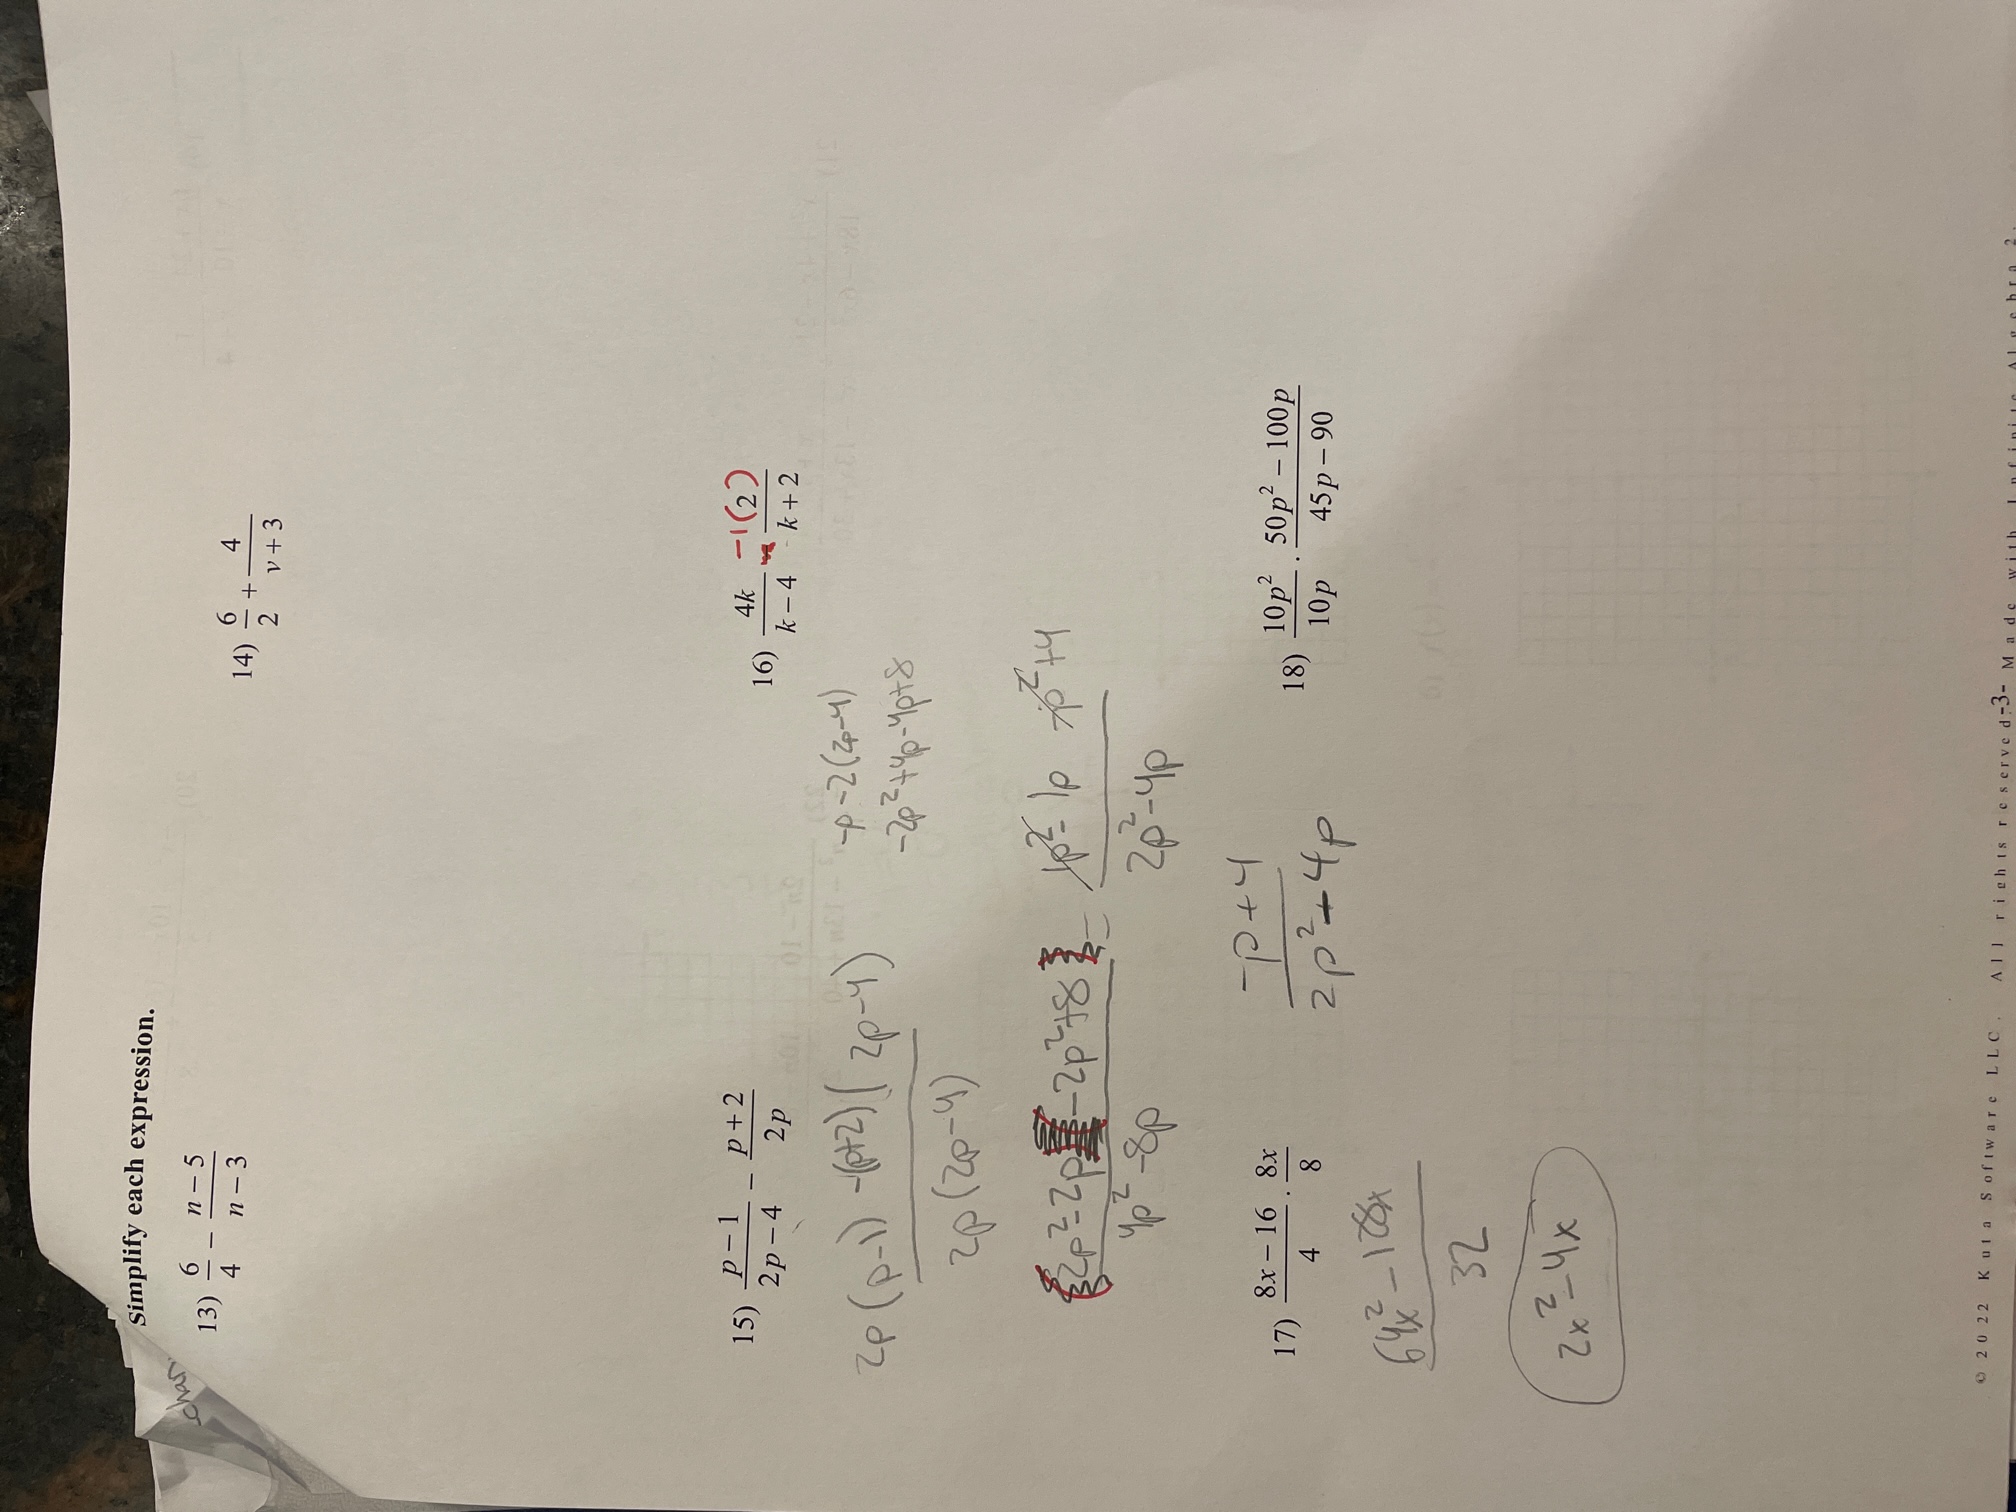 char
Simplify each expression.
13) 6/4 − (n − 5)/(n − 3)
14) 6/2 + 4/(v + 3)
15) (p − 1)/(2p − 4) − (p + 2)/2p
2p(p-1) -(p+2)(2p-4)
2p(2p-4)
-p-2(2p-4)
-2p²+4p-4p+8
2p²-2p -2p²+8 =
4p²-8p
1p²-1p -p²+4
2p²-4p
-p+4
2p²-4p
16) 4k/(k − 4) -1(2)/(k + 2)
17) (8x − 16)/4 · 8x/8
64x²-128x
32
2x²-4x
18) 10p²/10p · (50p² − 100p)/(45p − 90)
© 2022 Kuta Software LLC. All rights reserved.-3- Made with Infinite Algebra 2.